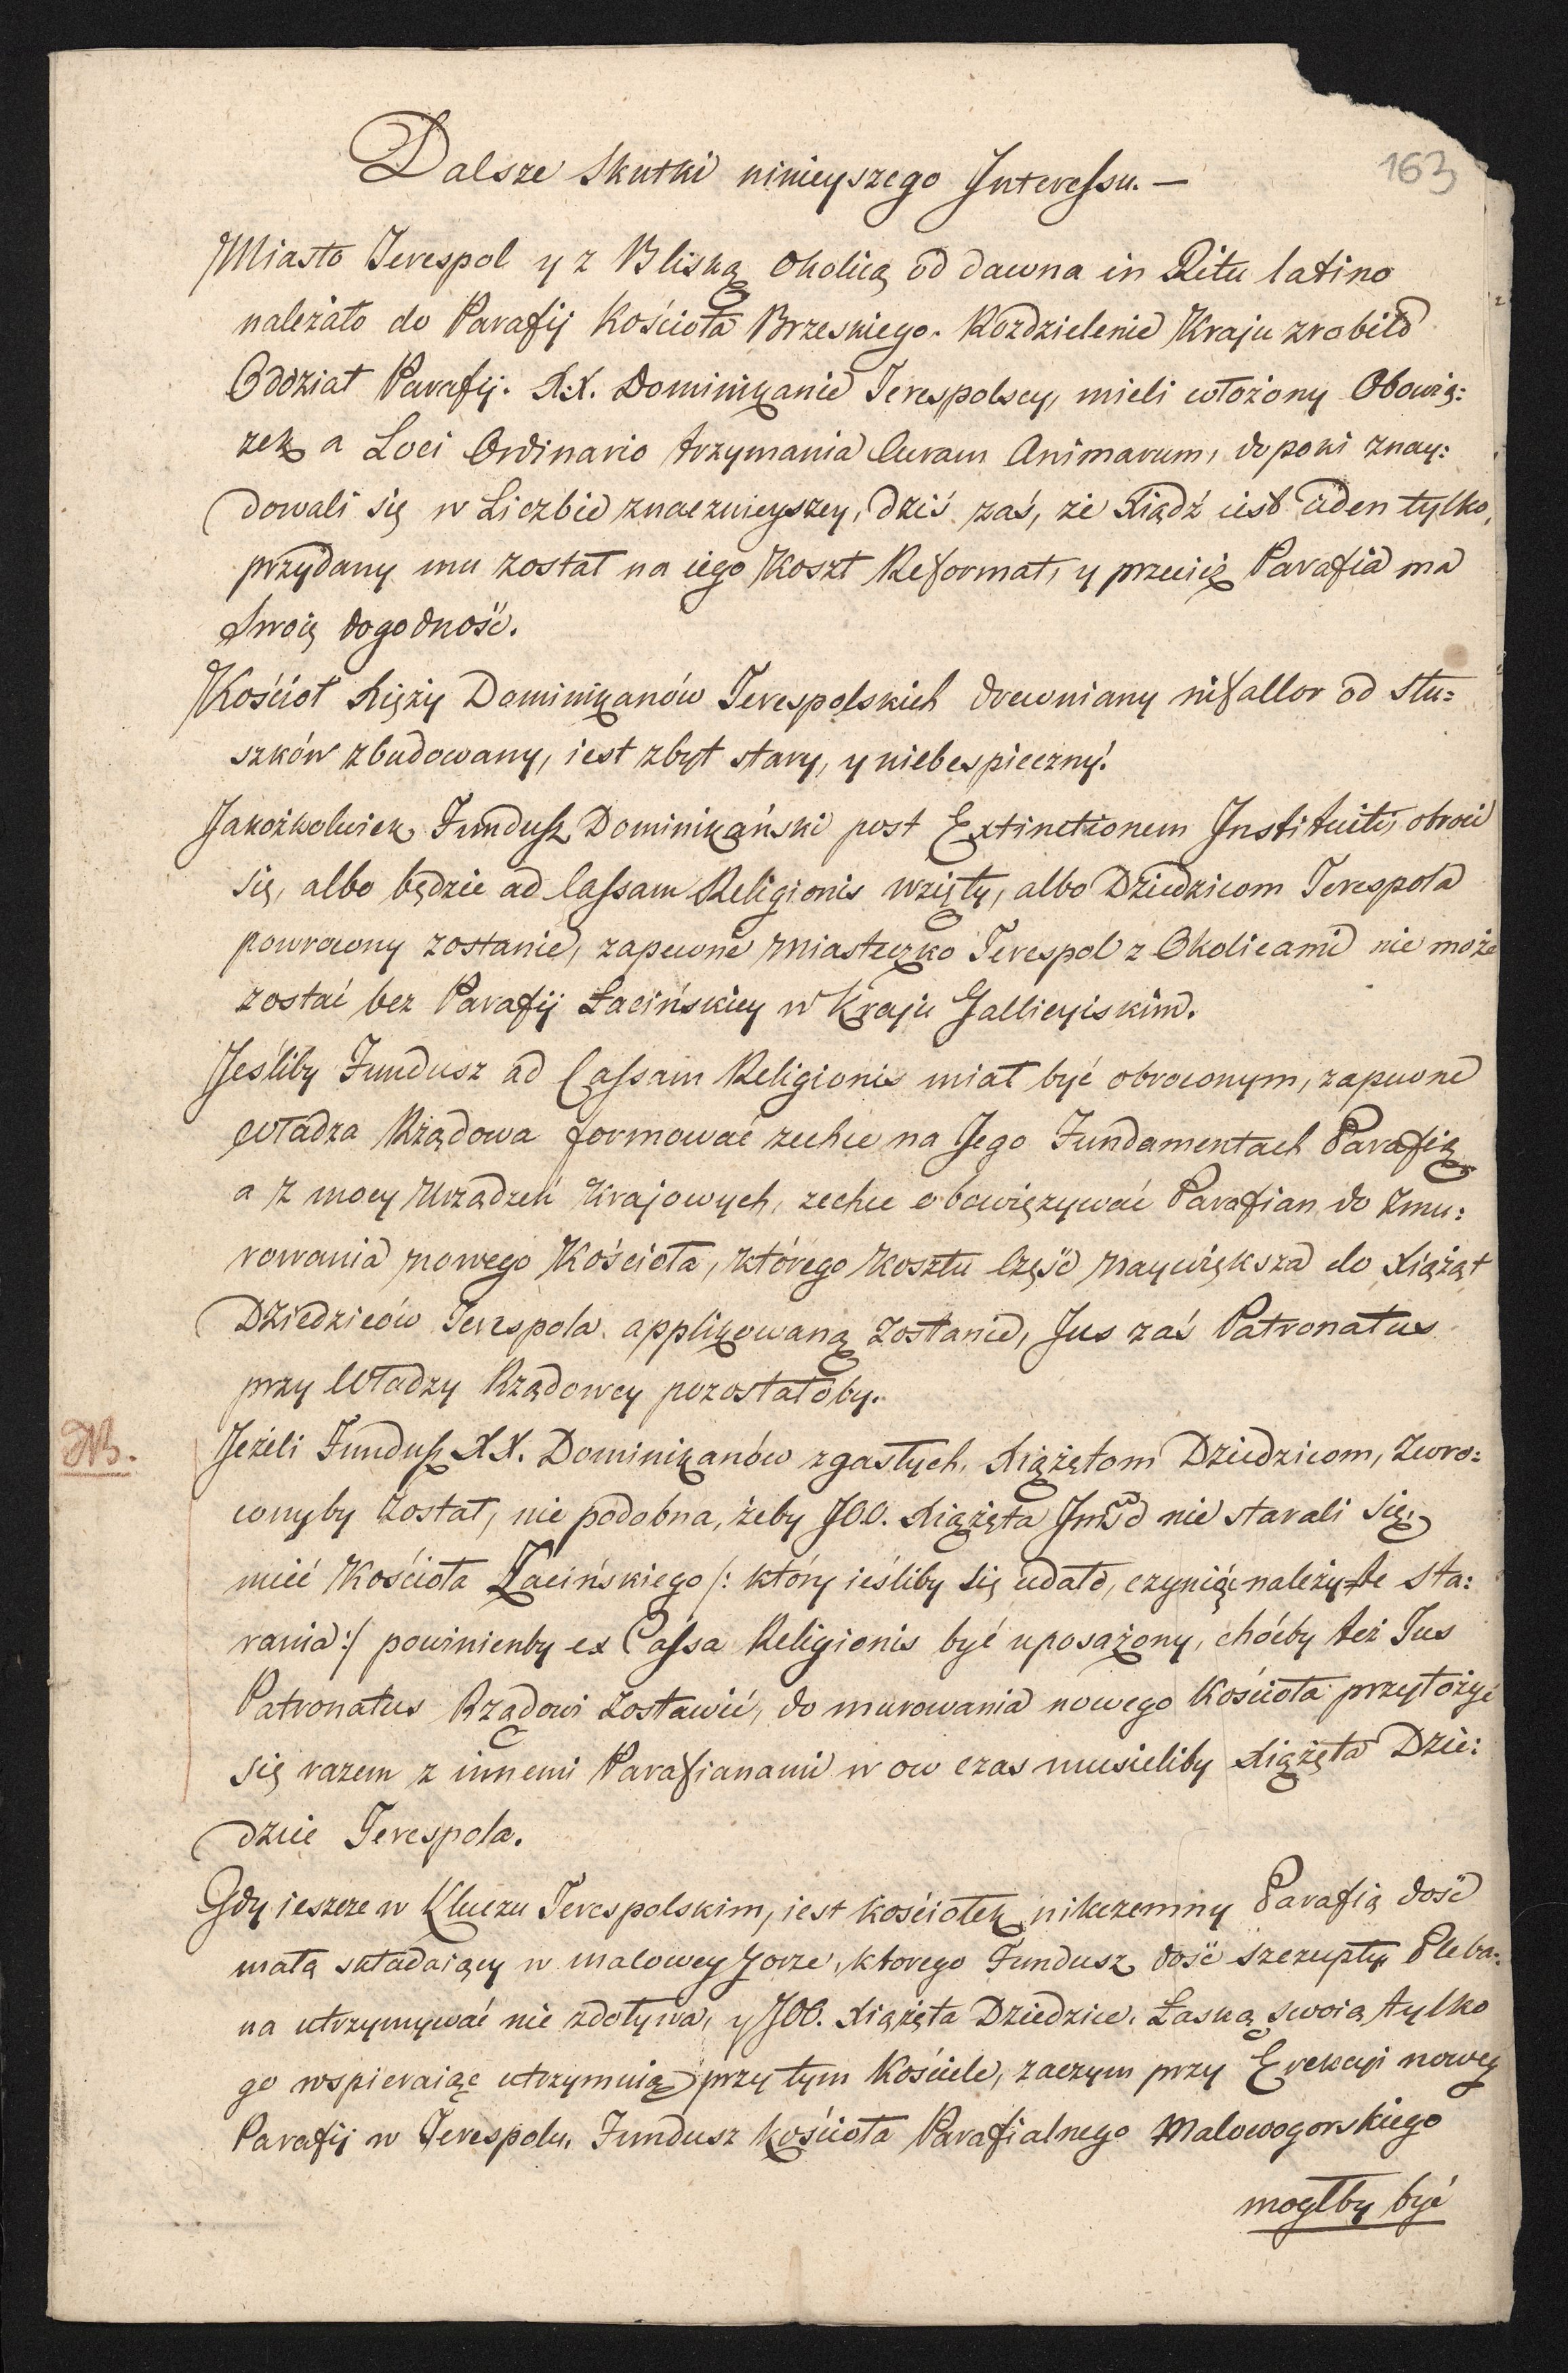 163
Dalsze Skutki ninieyszego Interessu. —
Miasto Terespol y z Bliską Okolicą od dawna in Ritu latino
należało do Parafij Kościoła Brzeskiego. Rozdzielenie Kraju zrobiło
Oddział Parafij. X.X. Dominikanie Terespolscy, mieli włożony Obowią:
zek a Loci Ordinario trzymania Curam Animarum, dopoki znay:
dowali się w Liczbie znacznieyszey, dziś zaś, że Xiądź iest ieden tylko,
przydany mu został na iego Koszt Reformat, y przecię Parafia ma
Swoię dogodność.
Kościoł Xięży Dominikanów Terespolskich drewniany nifallor od Słu:
szków zbudowany, iest zbyt stary, y niebespieczny.
Jakożkolwiek Fundusz Dominikański post Extinctionem Instituti, obroci
się, albo będzie ad Cassam Religionis wzięty, albo Dziedzicom Terespola
powrocony zostanie, zapewne Miasteczko Terespol z Okolicami nie może
zostać bez Parafij Łacińskiey w Kraju Gallicyiskim.
Jeśliby Fundusz ad Cassam Religionis miał być obroconym, zapewne
Władza Rządowa formować zechce na Jego Fundamentach Parafią
a z mocy Urządzeń Krajowych, zechce obowięzywać Parafian do zmu:
rowania nowego Kościoła, którego Kosztu Część naywiększa do Xiążąt
Dziedziców Terespola applikowaną zostanie, Jus zaś Patronatus
przy Władzy Rządowey pozostałoby.
NB. Jeżeli Fundusz XX. Dominikanów zgasłych, Xiążętom Dziedzicom, zwro:
conyby został, nie podobna, żeby JOO. Xiążęta Jmść nie starali się,
mieć Kościoła Łacińskiego /: który ieśliby się udało, czynić należyte sta:
rania :/ powinienby ex Cassa Religionis być uposażony, choćby też Jus
Patronatus Rządowi zostawić, do murowania nowego Kościoła przyłożyć
się razem z innemi Parafianami w ow czas musieliby Xiążęta Dzie:
dzice Terespola.
Gdy ieszcze w Kluczu Terespolskim, iest kościołek nikczemny Parafią dość
małą składaiący w Malowey Gorze, ktorego Fundusz dość szczupły Pleba:
na utrzymywać nie zdoływa, y JOO. Xiążęta Dziedzice, Łaską swoią tylko
go wspieraiąc utrzymuią przy tym Kościele, zaczym przy Erekcyi nowey
Parafij w Terespolu, Fundusz kościoła Parafialnego Malowogorskiego
mogłby być